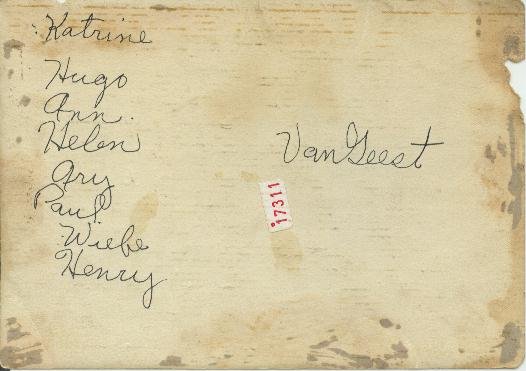 Katrine
Hugo
Ann.
Helen
Ary
Paul
Wiebe
Henry
VanGeest
17311